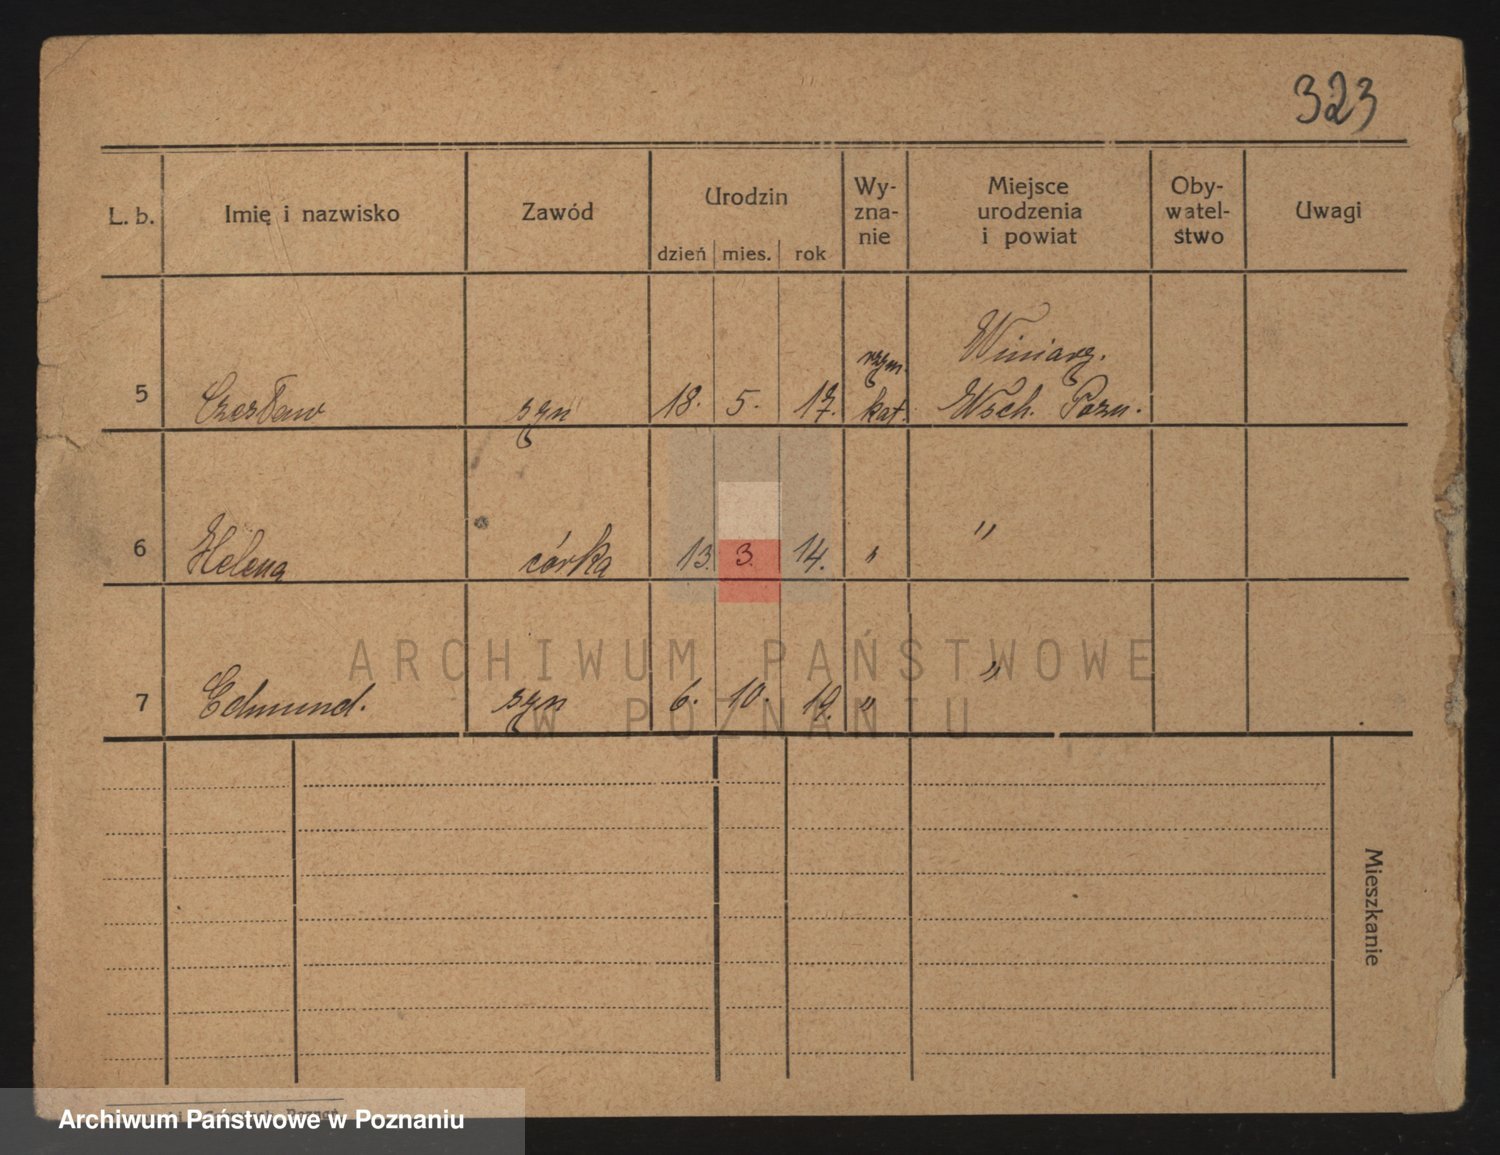 323
L. b. Imię i nazwisko Zawód Urodzin Wy-zna-nie Miejsce urodzenia i powiat Oby-watel-stwo Uwagi
dzień mies. rok
5 Czesław syn 18. 5. 17. rzym. kat. Winiary. Wsch. Pozn.
6 Helena córka 13. 3. 14. " "
7 Edmund. syn 6. 10. 19. " "
ARCHIWUM PAŃSTWOWE
W POZNANIU
Mieszkanie
Archiwum Państwowe w Poznaniu